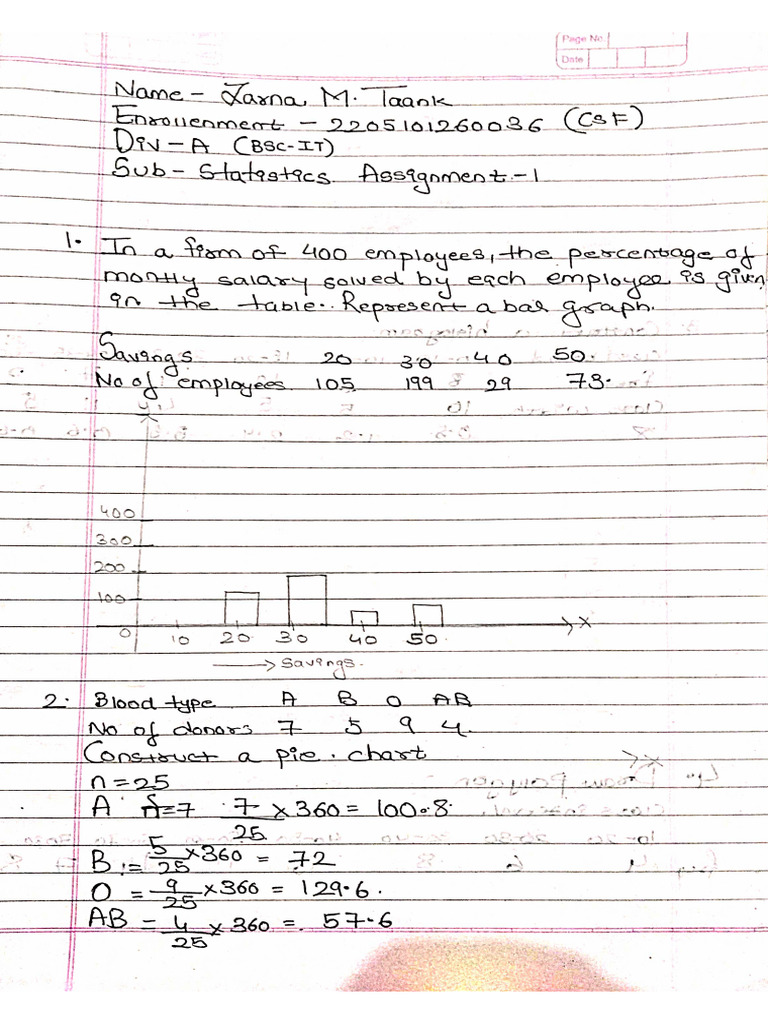 Page No.
Date
Name - Zarna M. Taank
Enrollenment - 2205101260036 (CSF)
Div - A (BSC-IT)
Sub - Statistics Assignment - 1
1. In a firm of 400 employees, the percentage of
montly salary solved by each employee is given
in the table. Represent a bar graph.
Savings 20 30 40 50.
No of employees 105 199 29 73.
400
300
200
100
0 10 20 30 40 50 X
→ Savings.
2. Blood type A B O AB
No of donors 7 5 9 4.
Construct a pie chart
n = 25
A = 7 7/25 × 360 = 100.8
B = 5/25 × 360 = 72
O = 9/25 × 360 = 129.6.
AB = 4/25 × 360 = 57.6